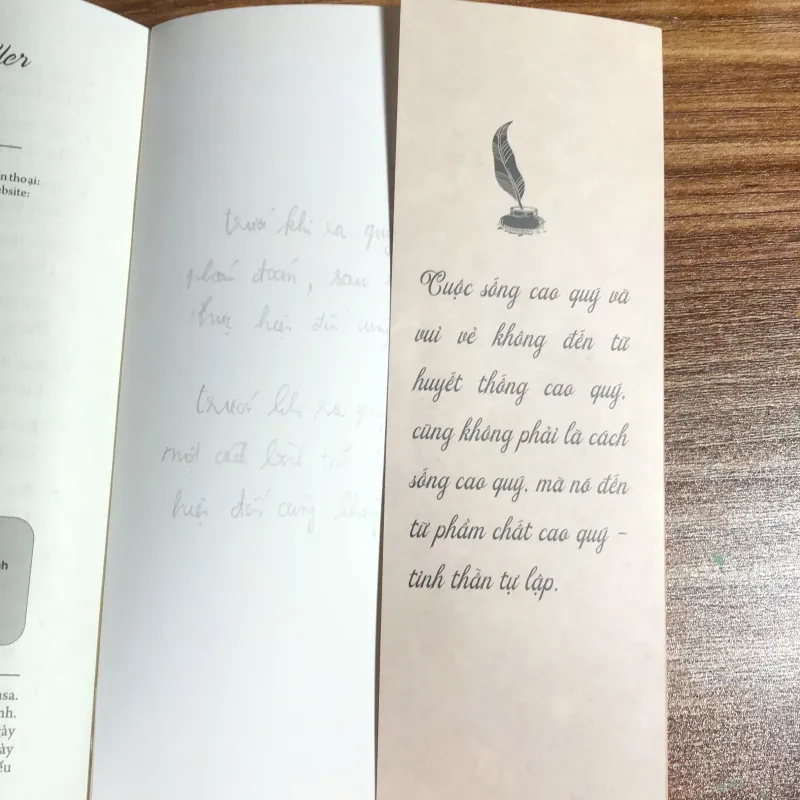 ller
n thoại:
bsite:
nh
asa.
nh.
gày
ày
ểu
trước khi ra quy
phán đoán, sau
thực hiện đến cùng
trước khi ra quy
một cách
hiện đến cùng
Cuộc sống cao quý và
vui vẻ không đến từ
huyết thống cao quý,
cũng không phải là cách
sống cao quý, mà nó đến
từ phẩm chất cao quý –
tinh thần tự lập.